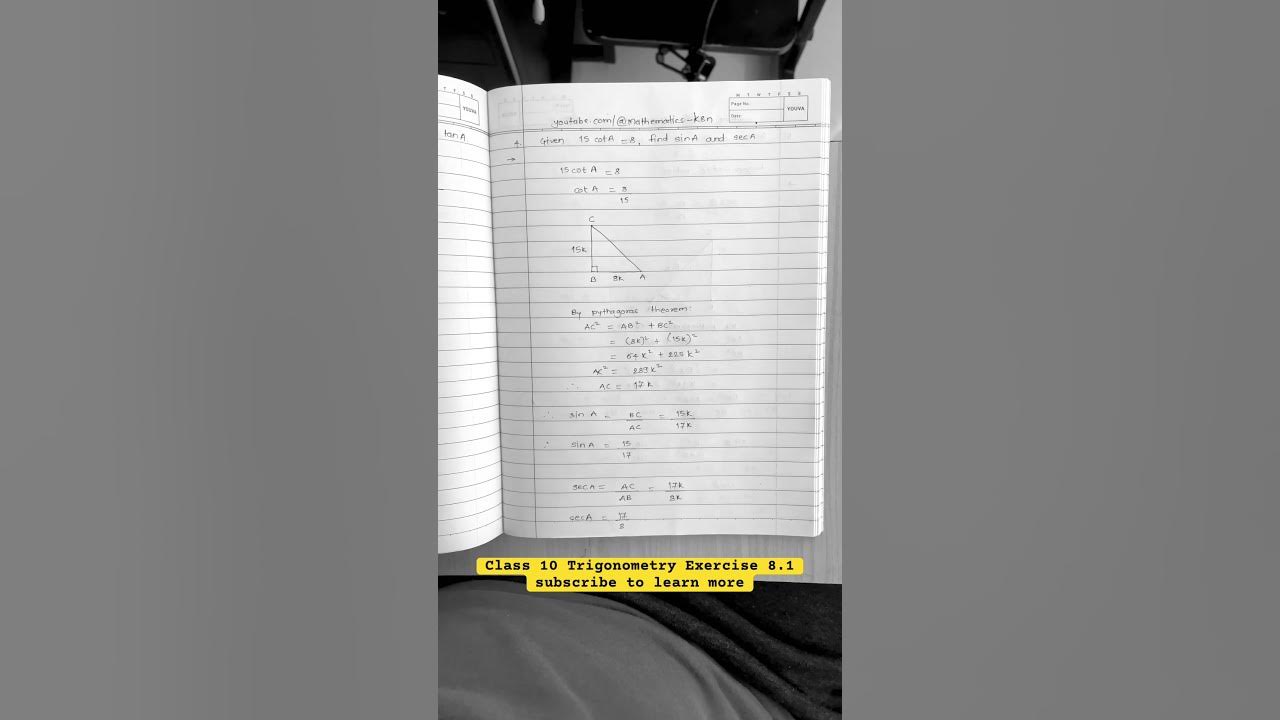 M T W T F S S
Page No.
Date:
YOUVA
T F S S
YOUVA
tan A
youtube.com/@mathematics-k8n
4. Given 15 cot A = 8, find sin A and sec A
→
15 cot A = 8
cot A = 8
15
C
15k
B 8k A
By pythagoras theorem:
AC² = AB² + BC²
= (8k)² + (15k)²
= 64k² + 225k²
AC² = 289k²
∴ AC = 17k
∴ sin A = BC = 15k
AC 17k
∴ sin A = 15
17
sec A = AC = 17k
AB 8k
sec A = 17
8
Class 10 Trigonometry Exercise 8.1
subscribe to learn more